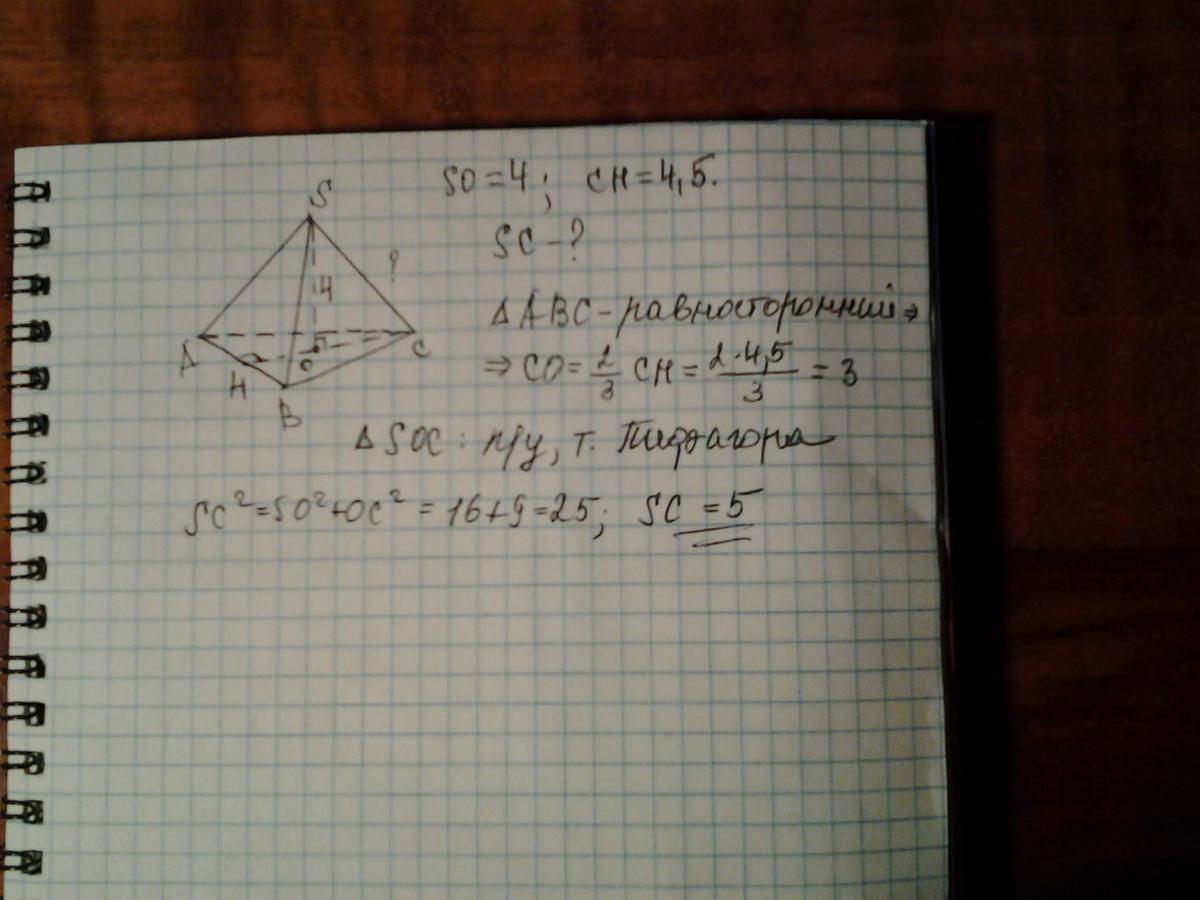 S
SO = 4 ; CH = 4,5.
SC - ?
4
?
A
H
B
O
C
△ ABC - равносторонний ⇒
⇒ CO = 2/3 CH = 2·4,5/3 = 3
△ SOC : п/у, т. Пифагора
SC² = SO² + OC² = 16 + 9 = 25; SC = 5